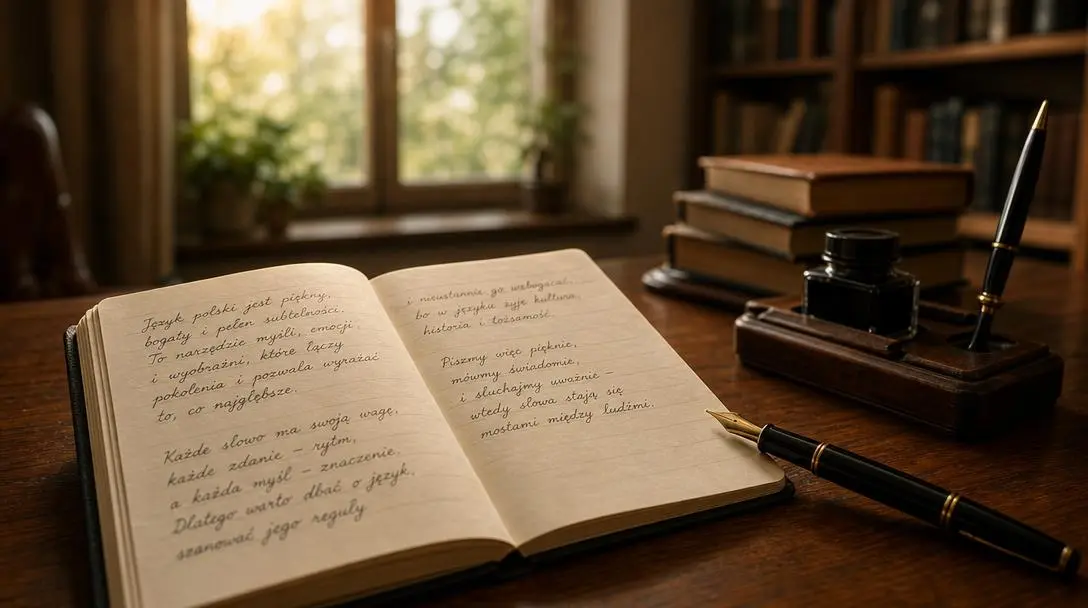 Język polski jest piękny,
bogaty i pełen subtelności.
To narzędzie myśli, emocji
i wyobraźni, które łączy
pokolenia i pozwala wyrażać
to, co najgłębsze.
Każde słowo ma swoją wagę,
każde zdanie – rytm,
a każda myśl – znaczenie.
Dlatego warto dbać o język,
szanować jego reguły
i nieustannie go wzbogacać,
bo w języku żyje kultura,
historia i tożsamość.
Piszmy więc pięknie,
mówmy świadomie,
i słuchajmy uważnie –
wtedy słowa stają się
mostami między ludźmi.